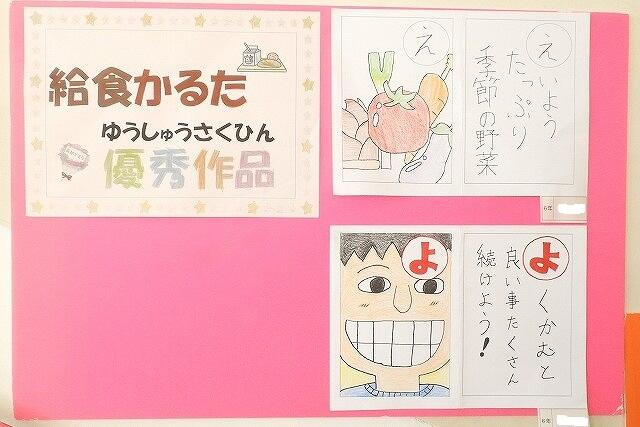 給食かるた
ゆうしゅうさくひん
優秀作品
え
えいよう
たっぷり
季節の野菜
6年
よ
よくかむと
良い事たくさん
続けよう!
6年